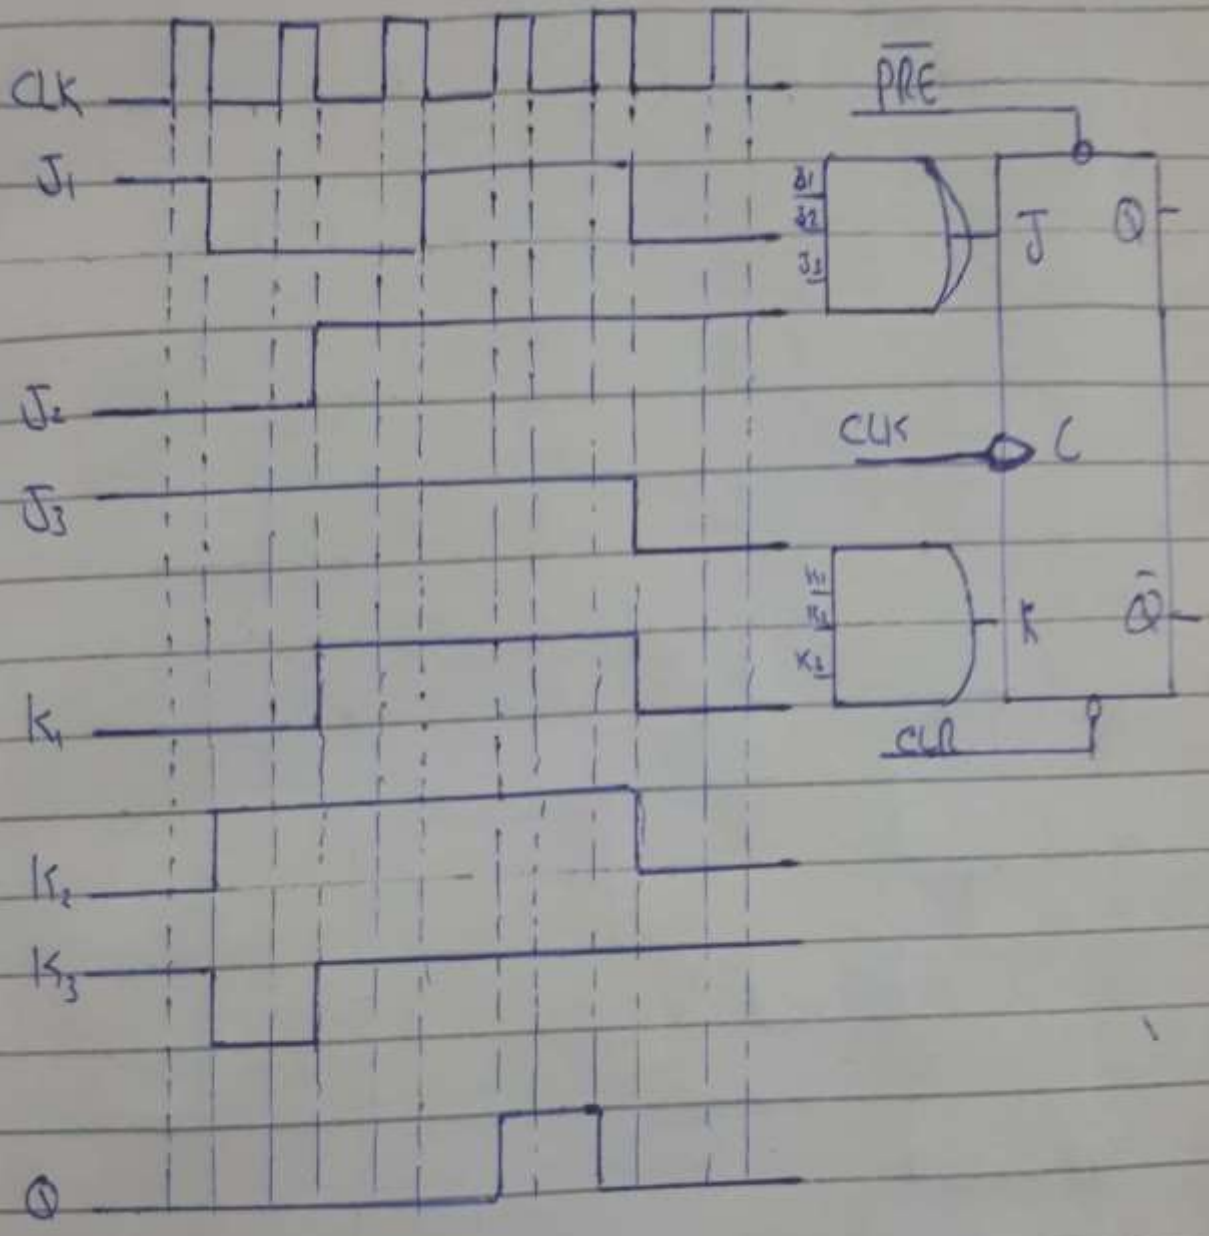 CLK
J1
J2
J3
K1
K2
K3
Q
PRE
J1
J2
J3
J
Q
CLK
C
K1
K2
K3
K
Q̄
CLR